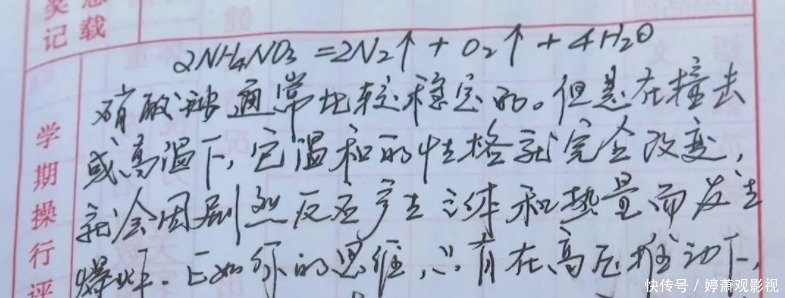 奖惩
记载
2NH4NO3=2N2↑+O2↑+4H2O
硝酸铵通常比较稳定的。但是在撞击
或高温下,它温和的性格就完全改变,
就会因剧烈反应产生气体和热量而发生
爆炸.正如你的思维,只有在高压推动下,
学期操行评
快传号/婷萧观影视